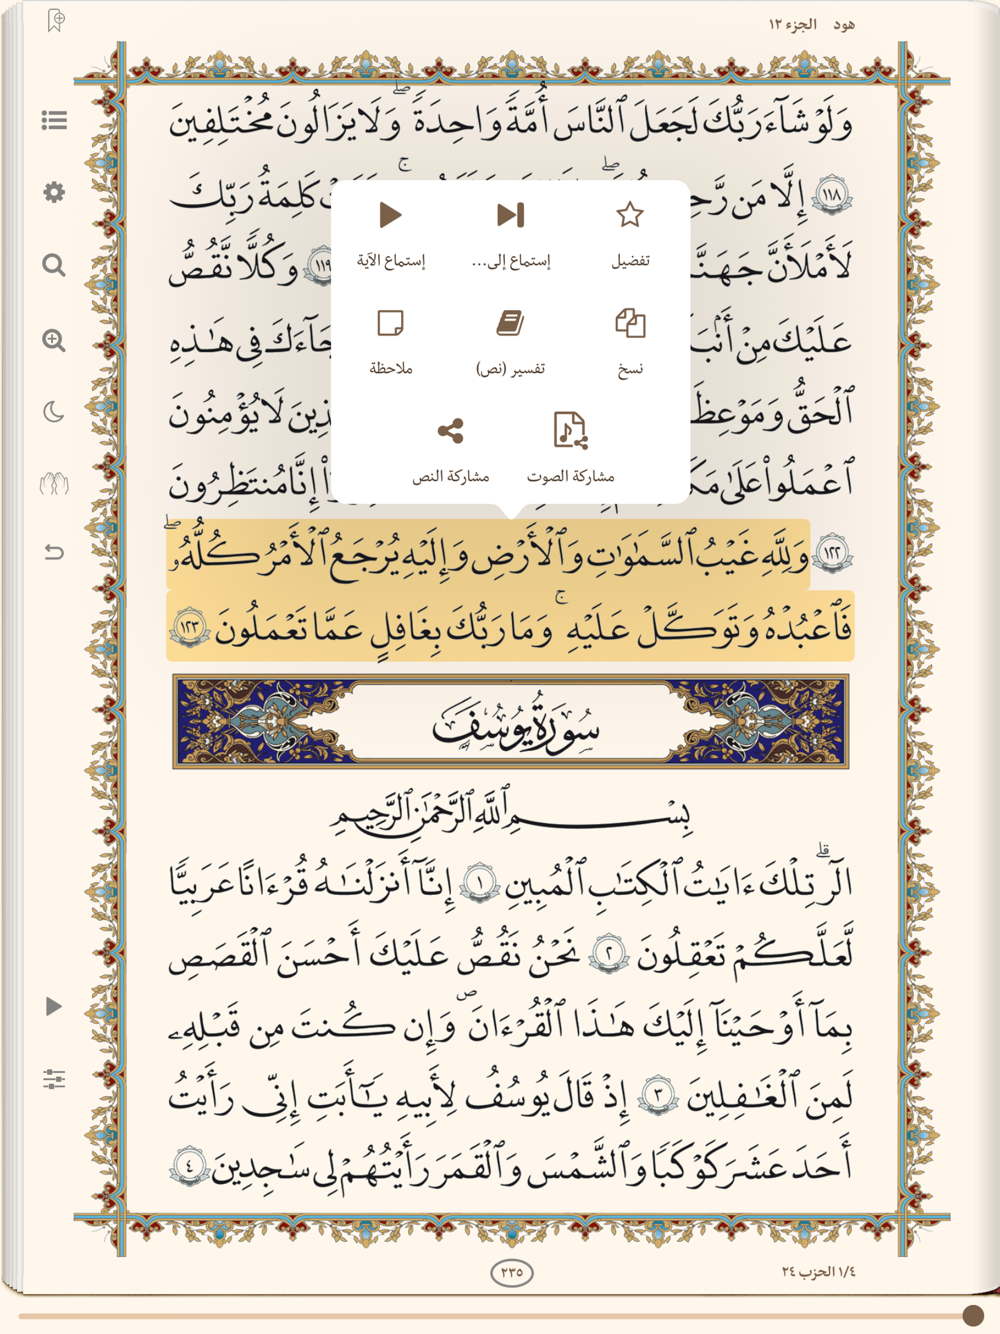 هود الجزء ١٢
وَلَوْ شَآءَ رَبُّكَ لَجَعَلَ ٱلنَّاسَ أُمَّةً وَٰحِدَةً ۖ وَلَا يَزَالُونَ مُخْتَلِفِينَ
١١٨ إِلَّا مَن رَّحِ كَلِمَةُ رَبِّكَ
لَأَمْلَأَنَّ جَهَنَّ ١١٩ وَكُلًّا نَّقُصُّ
عَلَيْكَ مِنْ أَنۢبَ جَآءَكَ فِى هَـٰذِهِ
ٱلْحَقُّ وَمَوْعِظَ لَا يُؤْمِنُونَ
ٱعْمَلُوا۟ عَلَىٰ مَكَ إِنَّا مُنتَظِرُونَ
تفضيل
إستماع إلى...
إستماع الآية
نسخ
تفسير (نص)
ملاحظة
مشاركة الصوت
مشاركة النص
١٢٢ وَلِلَّهِ غَيْبُ ٱلسَّمَـٰوَٰتِ وَٱلْأَرْضِ وَإِلَيْهِ يُرْجَعُ ٱلْأَمْرُ كُلُّهُۥ ۖ
فَٱعْبُدْهُ وَتَوَكَّلْ عَلَيْهِ ۚ وَمَا رَبُّكَ بِغَـٰفِلٍ عَمَّا تَعْمَلُونَ ١٢٣
سُورَةُ يُوسُفَ
بِسْمِ ٱللَّهِ ٱلرَّحْمَـٰنِ ٱلرَّحِيمِ
الٓر ۚ تِلْكَ ءَايَـٰتُ ٱلْكِتَـٰبِ ٱلْمُبِينِ ١ إِنَّآ أَنزَلْنَـٰهُ قُرْءَٰنًا عَرَبِيًّا
لَّعَلَّكُمْ تَعْقِلُونَ ٢ نَحْنُ نَقُصُّ عَلَيْكَ أَحْسَنَ ٱلْقَصَصِ
بِمَآ أَوْحَيْنَآ إِلَيْكَ هَـٰذَا ٱلْقُرْءَانَ وَإِن كُنتَ مِن قَبْلِهِۦ
لَمِنَ ٱلْغَـٰفِلِينَ ٣ إِذْ قَالَ يُوسُفُ لِأَبِيهِ يَـٰٓأَبَتِ إِنِّى رَأَيْتُ
أَحَدَ عَشَرَ كَوْكَبًا وَٱلشَّمْسَ وَٱلْقَمَرَ رَأَيْتُهُمْ لِى سَـٰجِدِينَ ٤
١/٤ الحزب ٢٤
٢٣٥